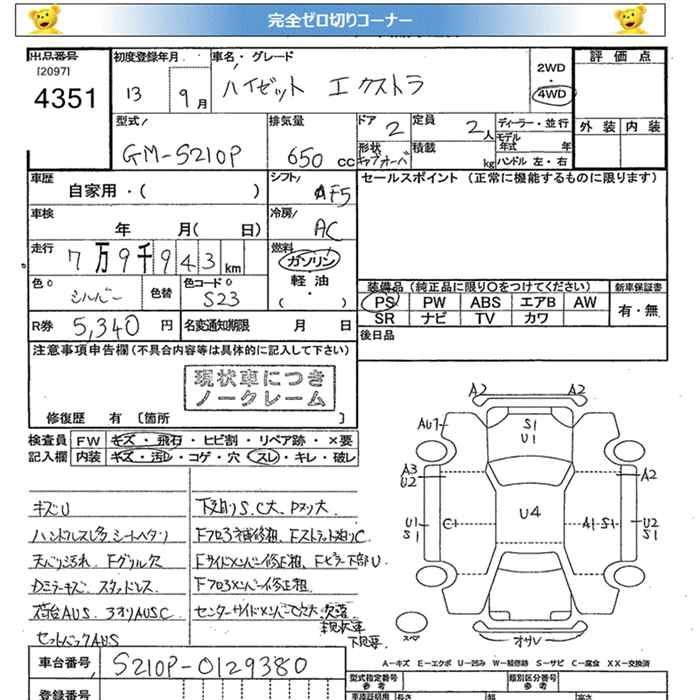 完全ゼロ切りコーナー
出品番号 初度登録年月 車名・グレード 評価点
(2097)
4351
13 9月 ハイゼット エクストラ
2WD
・
4WD
外装 内装
型式 排気量 ドア 定員 ディーラー・並行
GM-S210P 650cc 2 2人
モデル年式 年
形状 積載 kg ハンドル 左・右
キャブオーバ
車歴 シフト セールスポイント(正常に機能するものに限ります)
自家用・( ) AF5
車検 冷房
年 月( 日) AC
走行 燃料
7万9千943km ガソリン
軽油
・
( )
色 シルバー 色替 色コード S23
装備品(純正品に限り○をつけてください) 新車保証書
PS PW ABS エアB AW
SR ナビ TV カワ
有・無
R券 5,340円 名変通知期限 月 日
後日品
注意事項申告欄(不具合内容等は具体的に記入して下さい)
現状車につき
ノークレーム
修復歴 有 [箇所 ]
検査員 FW キズ・飛石・ヒビ割・リペア跡・×要
記入欄 内装 キズ・汚レ・コゲ・穴 スレ・キレ・破レ
キズU
ハンドルスレ多、シートヘタリ
天バリ汚れ、Fグリル欠
Dミラーキズ、スタッドレス
荷台AUS、3オリAUSC
セットバックAUS
下廻りS、C大、Pヌリ大
Fクロス不補修粗、Fストラット廻りC
Fサイドメンバー修正粗、Fピラー下部U
Fクロスメンバー修正粗
センターサイドメンバーC穴大
現状車
下見要
A2 A2
S1
U1
AU1
A3
U2
A2
U1
S1
C1
U4
A1 S1
U2
S1
スペア
オサレ
A-キズ E-エクボ U-凹み W-補修跡 S-サビ C-腐食 XX-交換済
車台番号 S210P-0129380
登録番号
型式指定番号 参考
類別区分番号 参考
長さ 幅 高さ